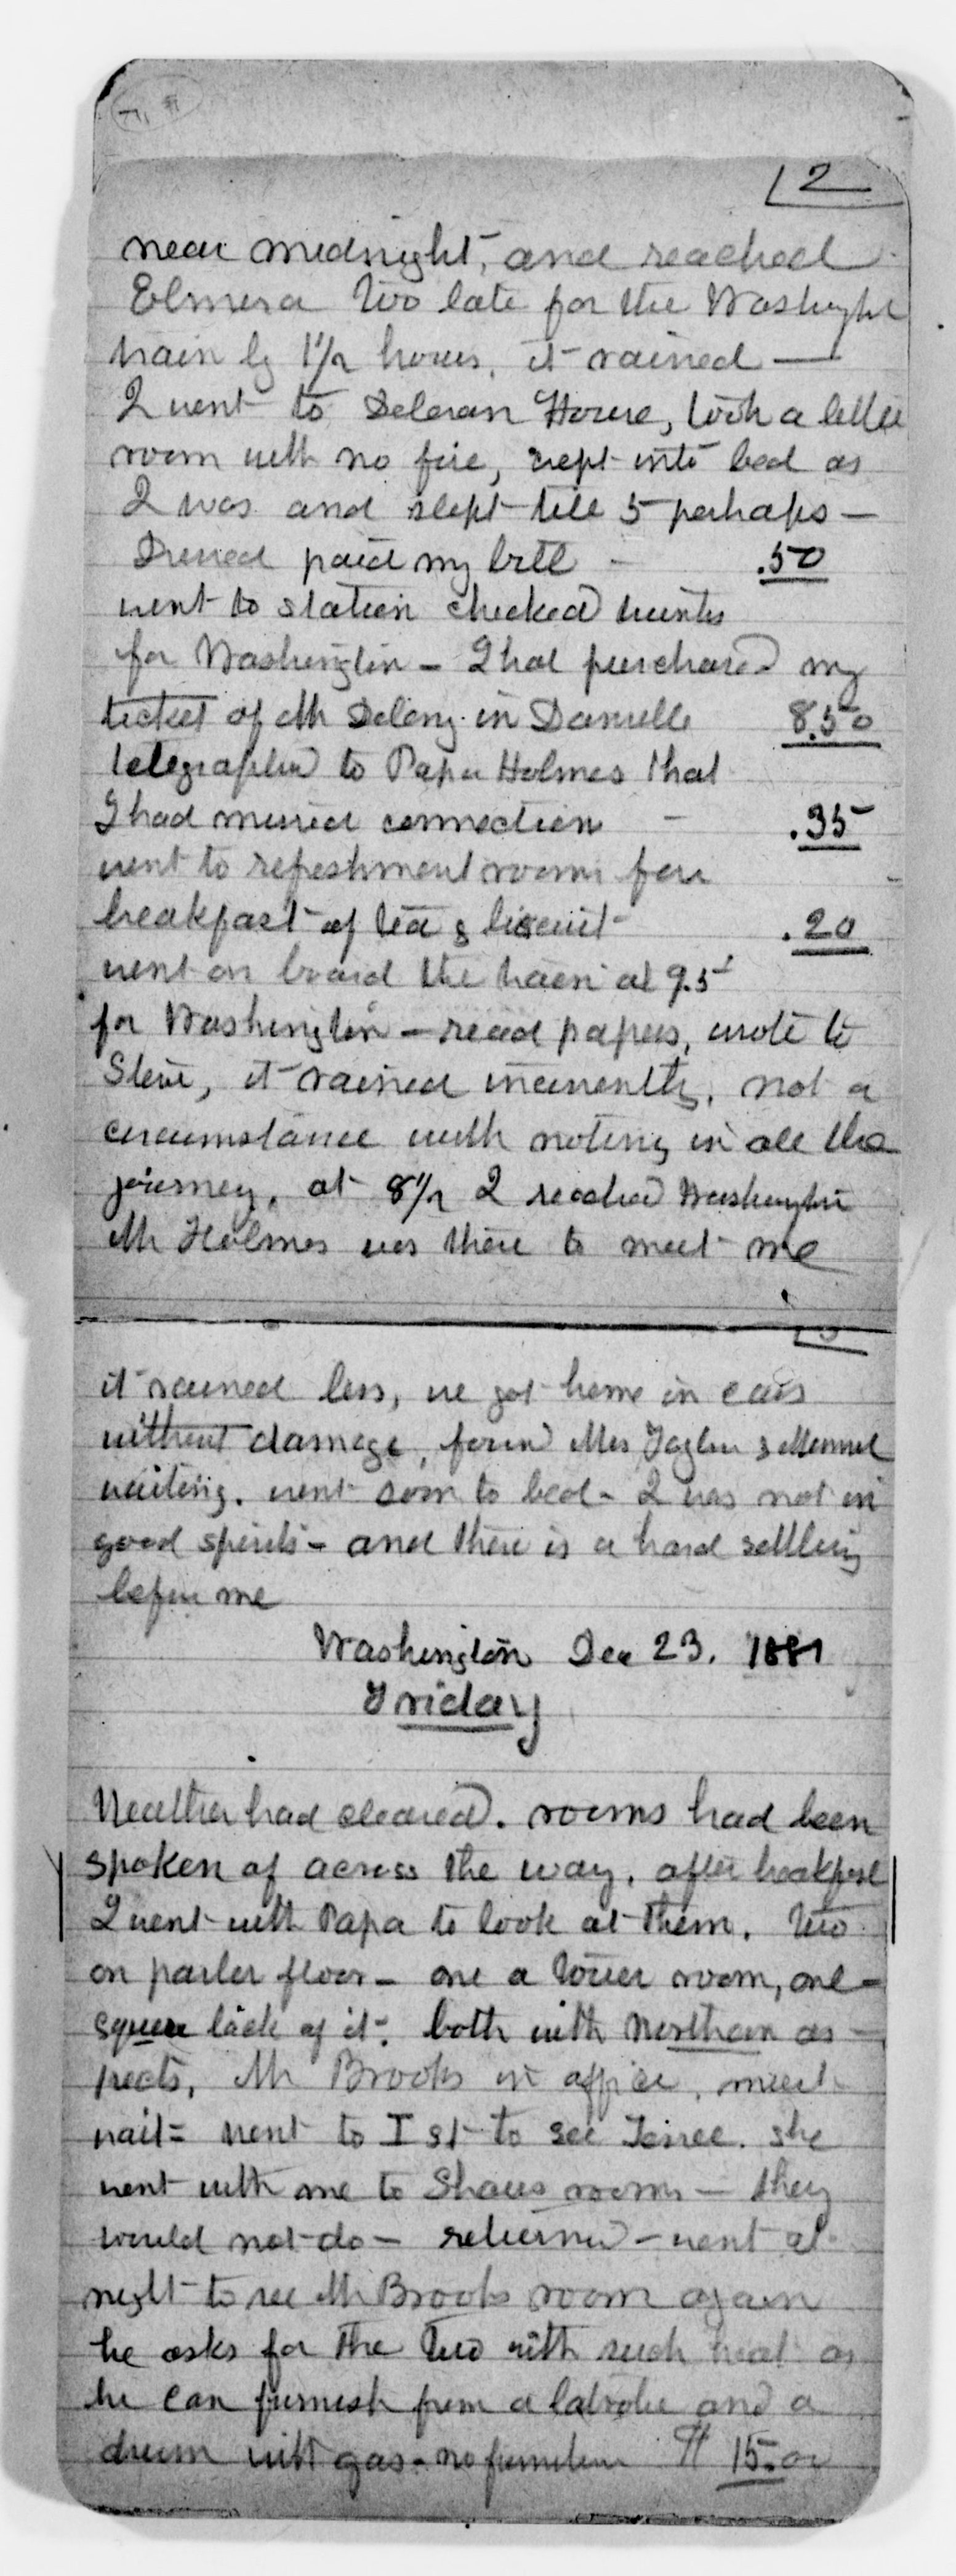 2
near midnight, and reached
Elmira too late for the Washingt
train by 1½ hours, it rained —
I went to Delevan House, took a little
room with no fire, crept into bed as
I was and slept till 5 perhaps —
Dressed paid my bill - .50
went to station checked trunks
for Washington - I had purchased my
ticket of Mr Delany in Dansville 8.50
telegraphed to Papa Holmes that
I had missed connection - .35
went to refreshment room for
breakfast of tea & biscuit .20
went on board the train at 9.5
for Washington - read papers, wrote to
Steve, it rained incessantly, not a
circumstance worth noting in all the
journey, at 8½ I reached Washington
Mr Holmes was there to meet me
3
it rained less, we got home in cars
without damage, found Mrs Taylor &
waiting. went soon to bed - I was not in
good spirits - and there is a hard settling
before me
Washington Dec 23. 1881
Friday
Weather had cleared. rooms had been
spoken of across the way, after breakfast
I went with Papa to look at them. two
on parlor floor - one a tower room, one
square back of it. both with Northern as -
pects, Mr Brooks in office, must
wait = went to I st to see Jennee. she
went with me to Shaws rooms - they
would not do - returned - went at
night to see Mr Brooks room again
he asks for the two with such heat as
he can furnish from a latrobe and a
drum with gas - no furniture $ 15.00